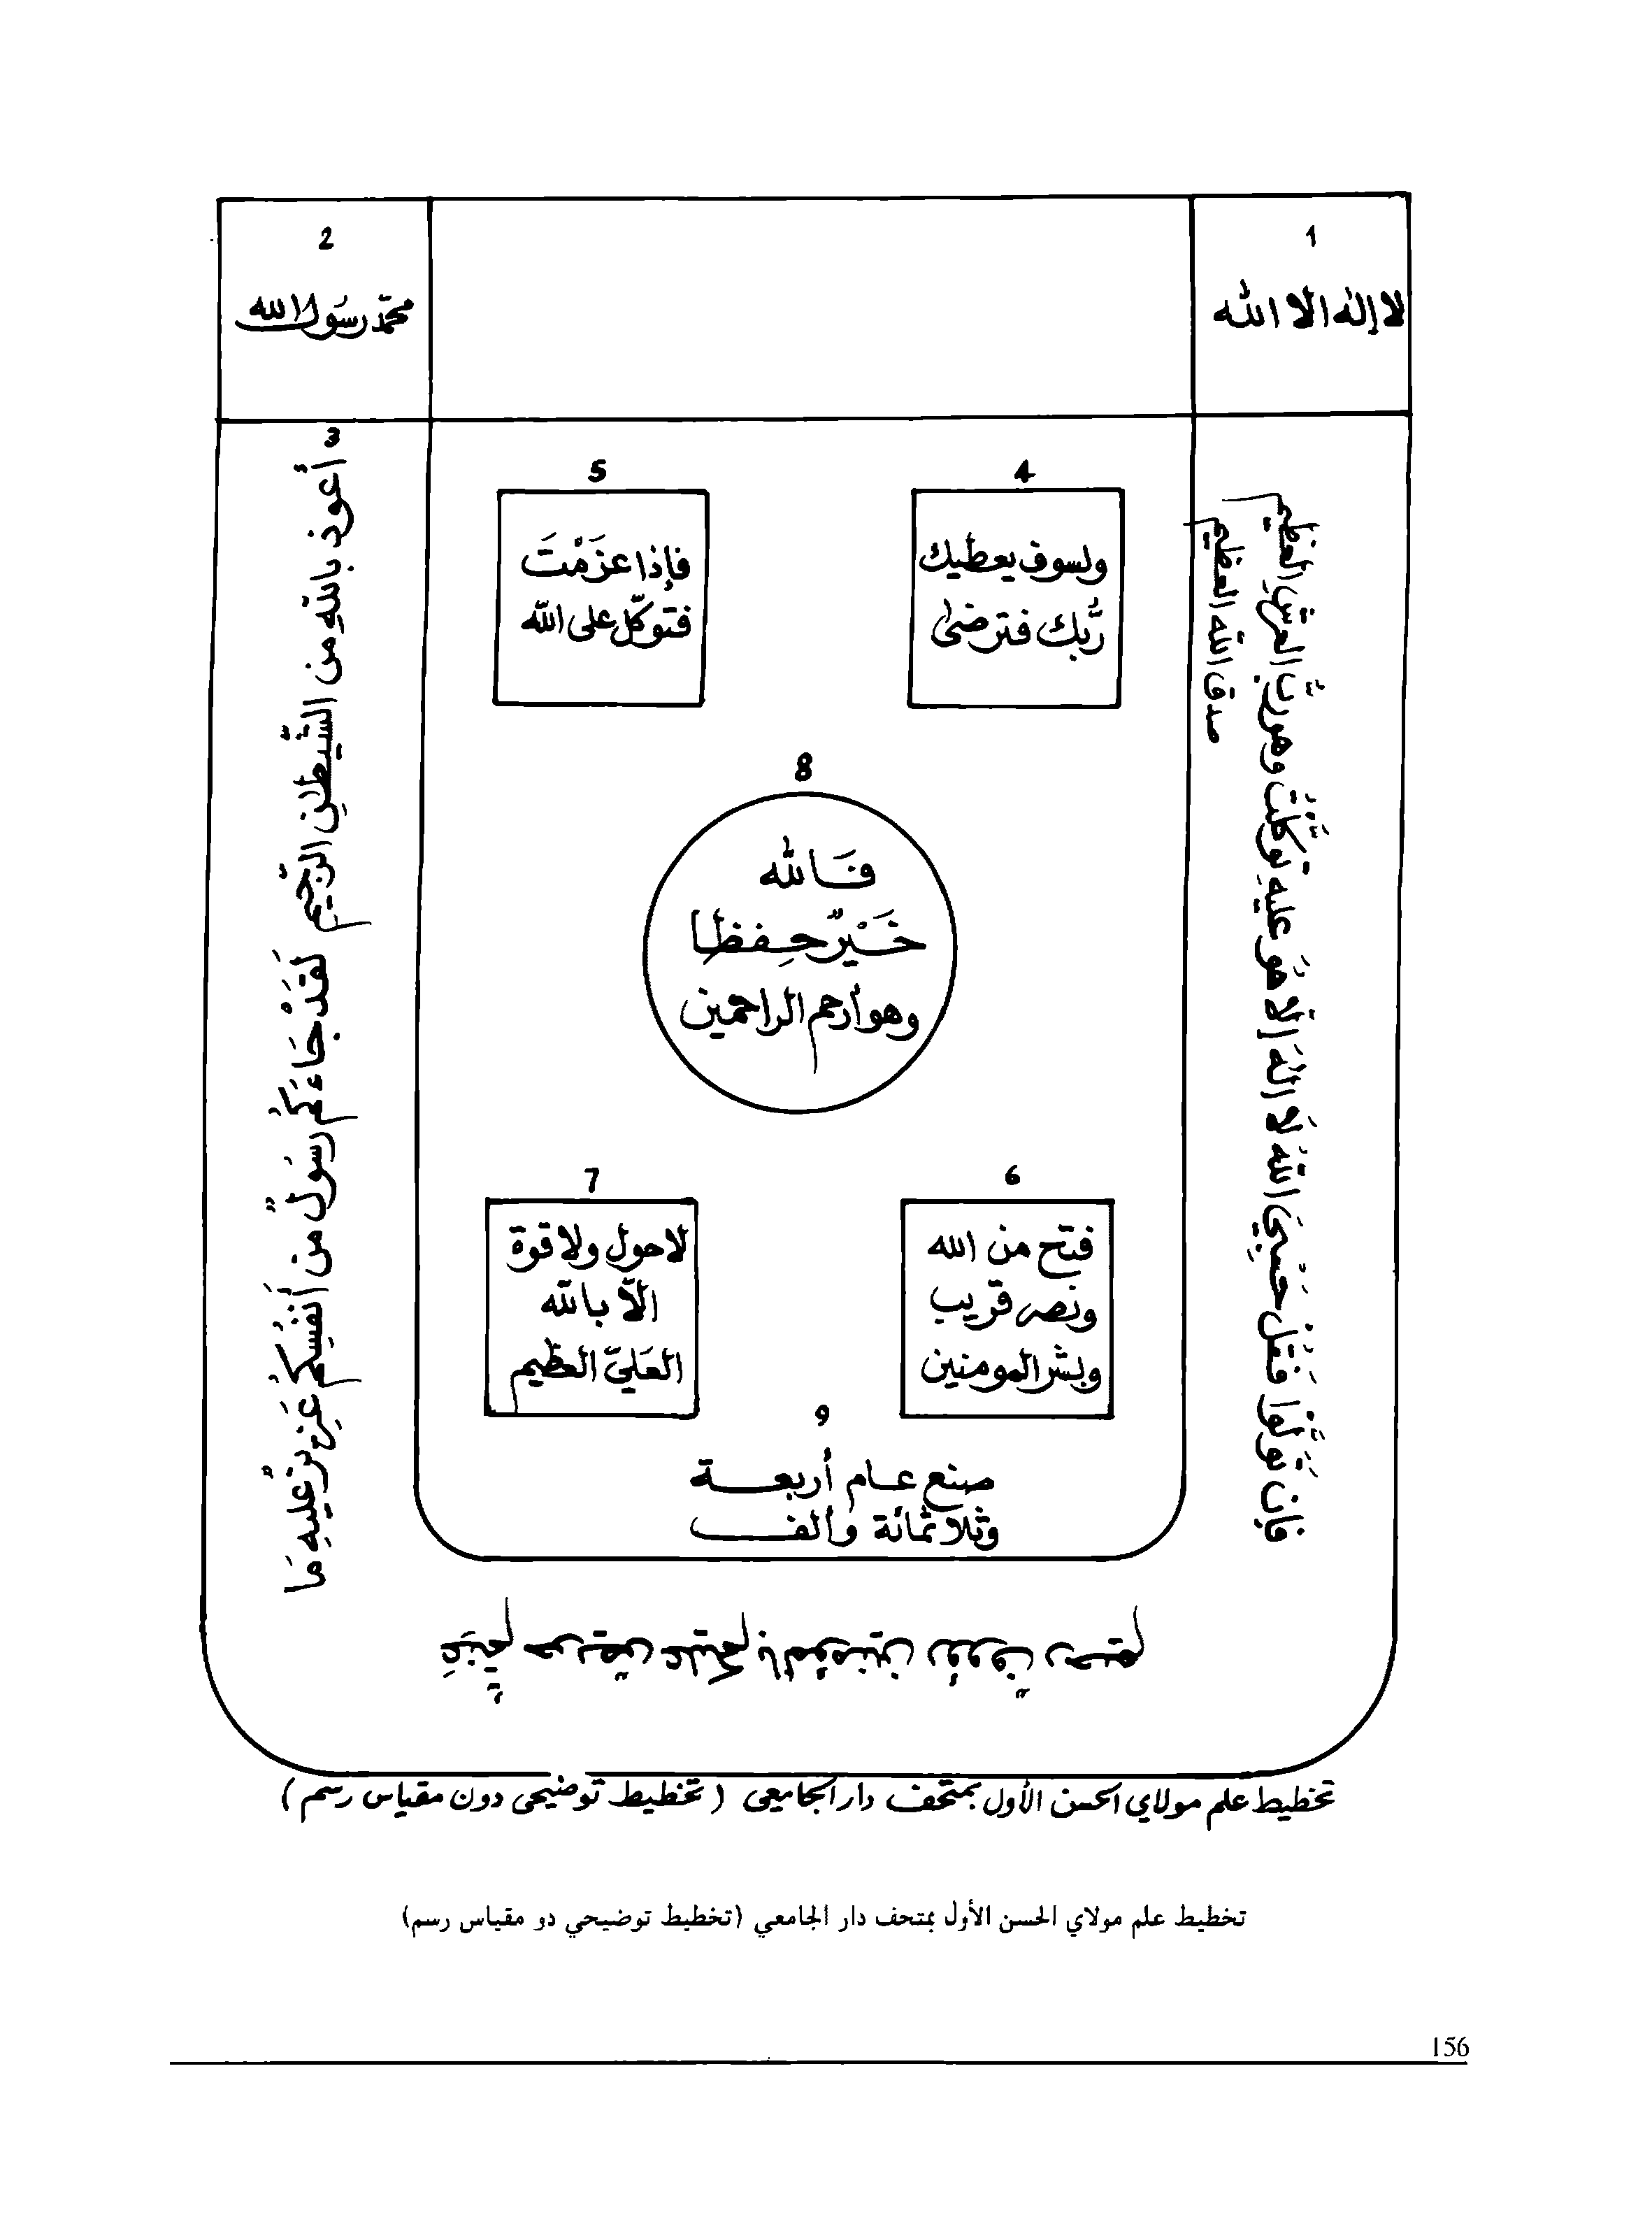 1
لا إله الا الله
2
محمّد رسَول الله
3
أعوذ باللهِ من الشّيطٰنِ الرّجيم لَقَدْ جَاءَكُم رسَولٌ مِّن أنفُسِكُم عَزيزٌ عَليهِ مَا
عَنِتُّم حريصٌ عليكم بالمؤمنين رؤوفٌ رحيم
فإِن تَوَلَّوْا فَقُلْ حَسْبِيَ اللهُ لَا الهَ إلّا هُوَ عليهِ توكّلْتُ وهو ربُّ العرشِ العظيم
صدق الله العظيم
4
ولسوف يعطيك
ربُّك فترضىٰ
5
فإذا عزَمْتَ
فتوكّل على الله
8
فَالله
خَيْرٌ حِفظا
وهو أرحم الراحمين
6
فتح من الله
ونصر قريب
وبشر المومنين
7
لا حول ولا قوة
الّا بالله
العَليّ العظيم
9
صنع عام أربعة
وثلاثمائة وألف
تخطيط علم مولاي الحسن الأول بمتحف دار الجامعي (تخطيط توضيحي دون مقياس رسم)
تخطيط علم مولاي الحسن الأول بمتحف دار الجامعي (تخطيط توضيحي دو مقياس رسم)
156